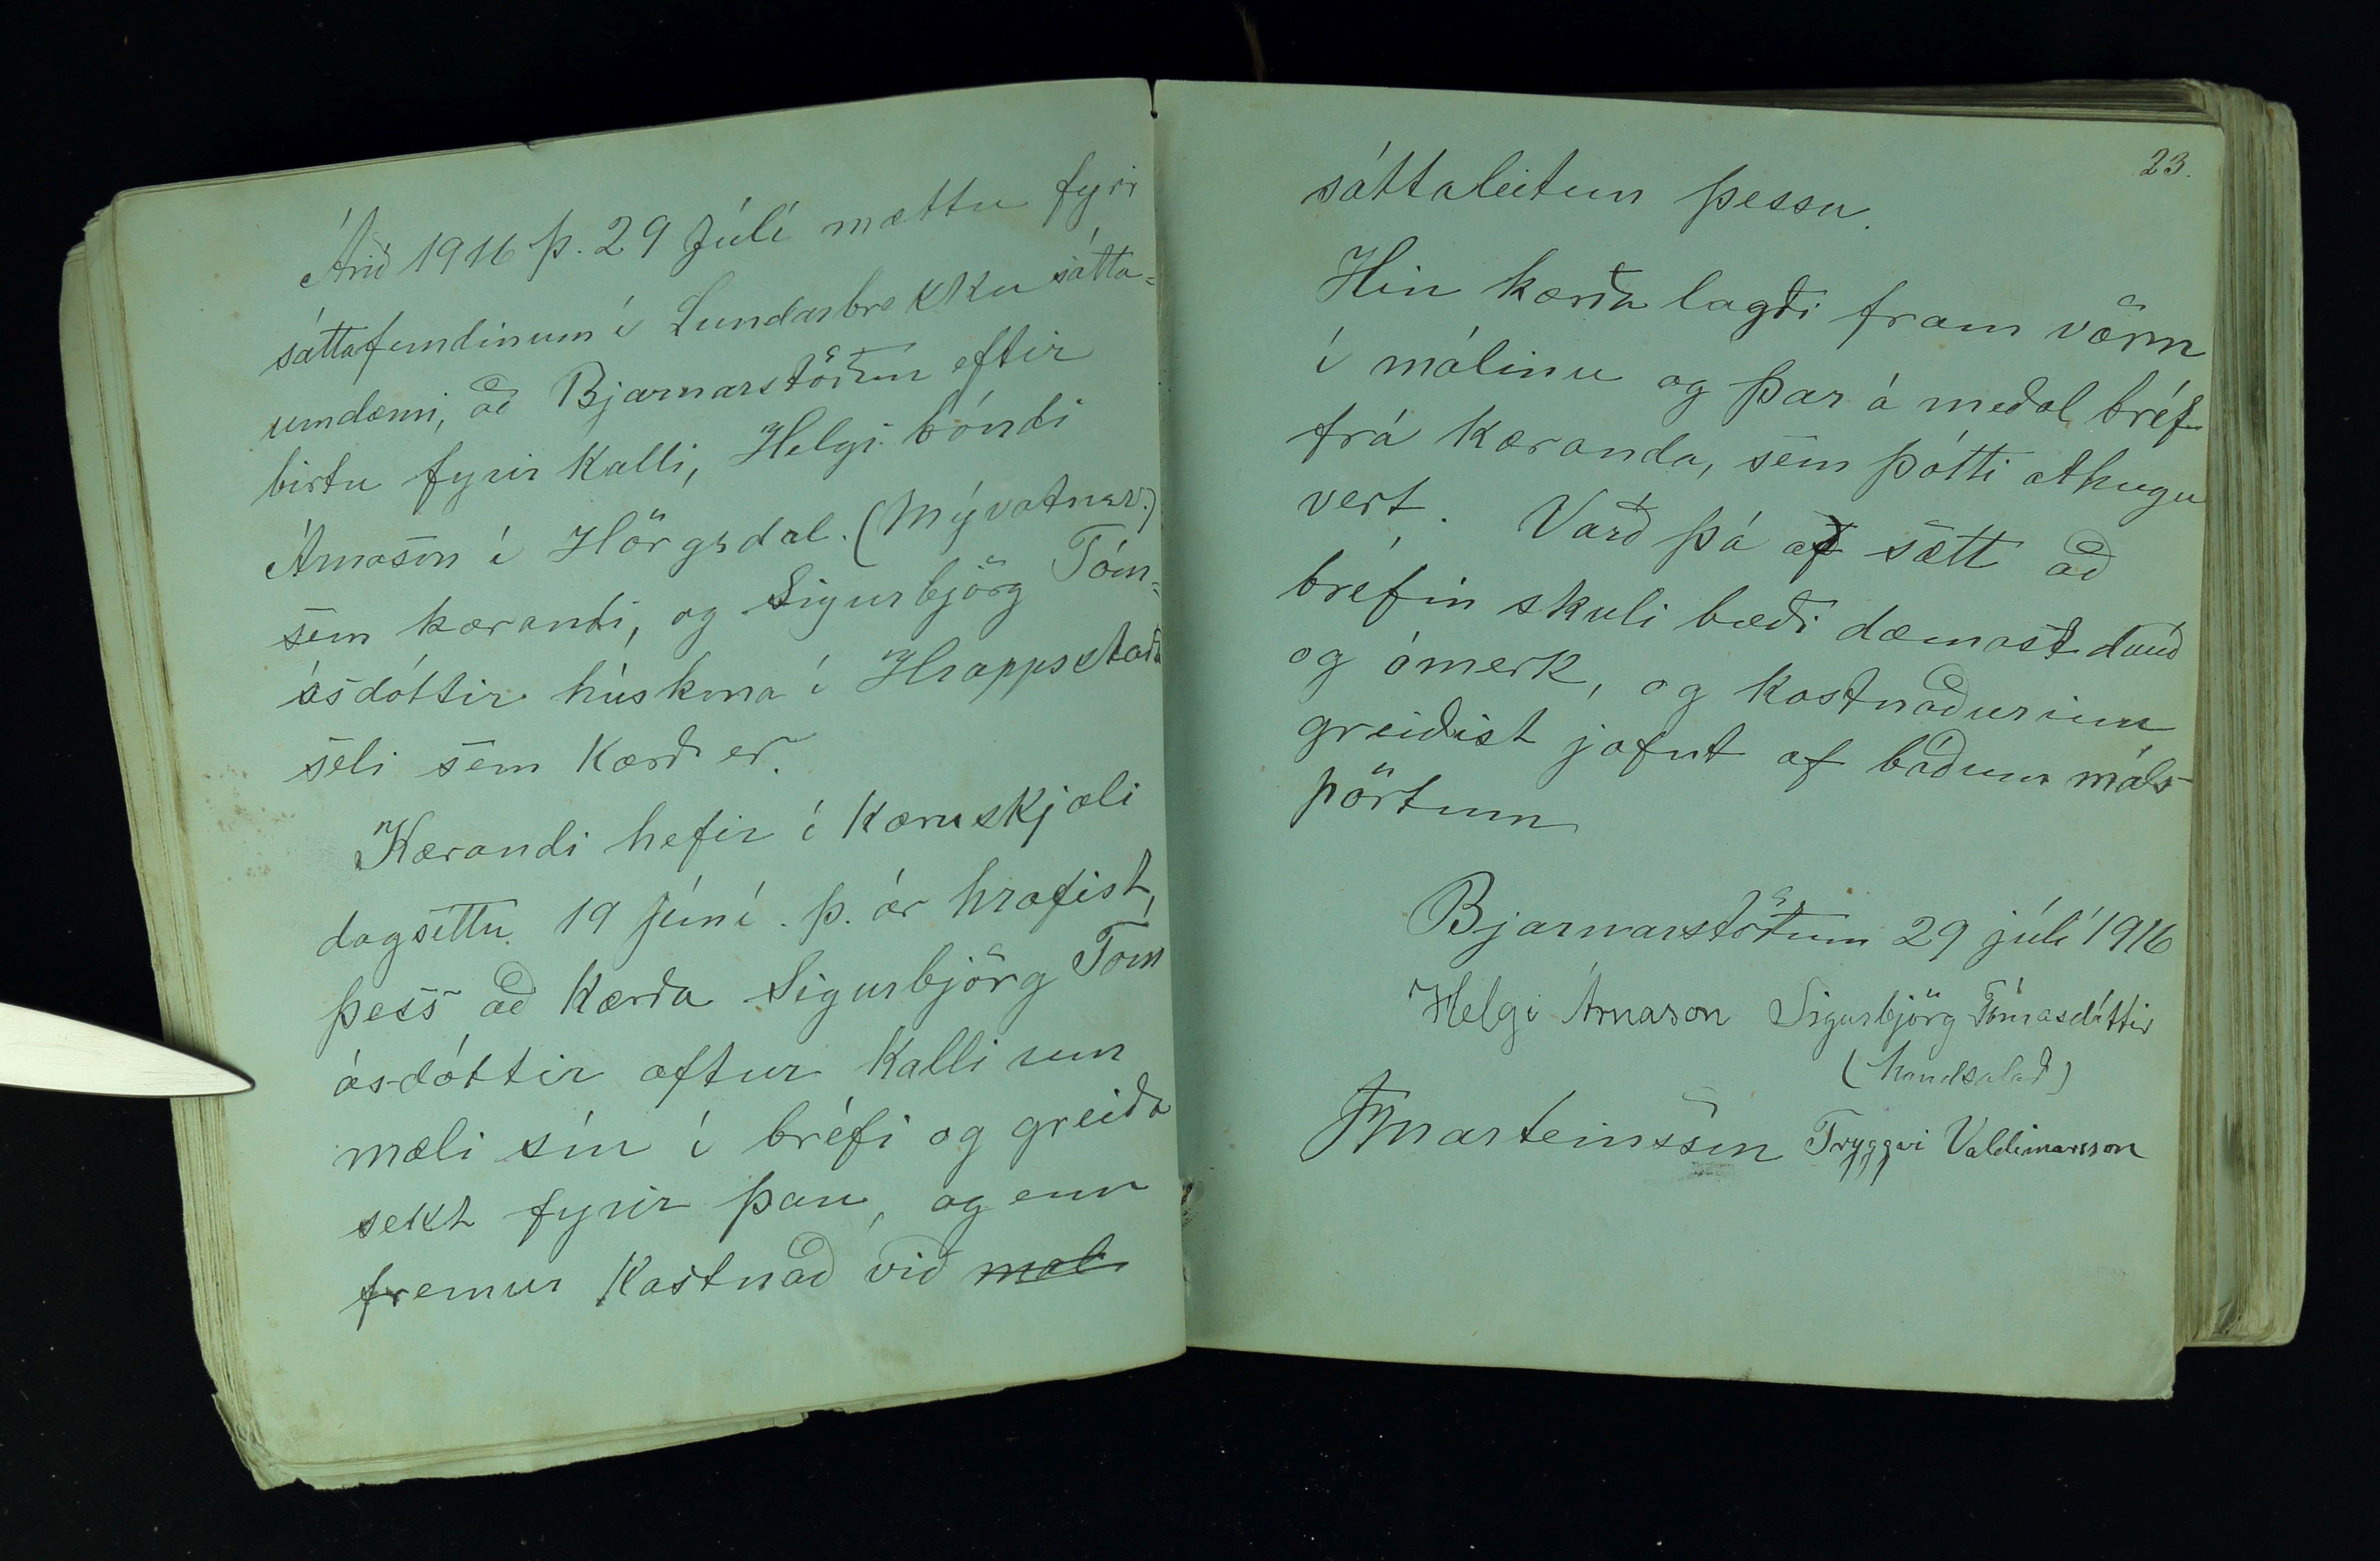 Árið 1916 þ. 29 Júlí mættu fyrir
sáttafundinum í Lundarbrekku sátta=
umdæmi, að Bjarnarstöðum eftir
birtu fyrir kalli, Helgi bóndi
Árnason í Hörgsdal. (Mývatnssv.)
sem kærandi, og Sigurbjörg Tóm=
ásdóttir húskona í Hrappsstaða
seli sem kærð er.
Kærandi hefir í kæruskjali
dagsettu 19 Júní . þ. ár krafist,
þess að kærða Sigurbjörg Tóm
ásdóttir aftur kalli um
mæli sín í bréfi og greiða
sekt fyrir þau, og enn
fremur kostnað við mál
23.
sáttaleitun þessa.
Hin kærða lagði fram vörn
í málinu og þar á meðal bréf
frá kæranda, sem þótti athugu
vert. Varð þá að sætt að
bréfin skuli bæði dæmast dauð
og ómerk, og kostnaðurinn
greiðist jafnt af báðum máls-
pörtum
Bjarnarstöðum 29 júlí 1916
Helgi Árnason Sigurbjörg Tómasdóttir
(handsalað)
Marteinsson Tryggvi Valdimarsson